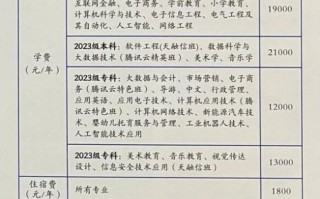 互联网金融、电子商务、学前教育、小学教育、
计算机科学与技术、电子信息工程、电气工程及
其自动化、人工智能、网络工程
19000
学费
（元/年）
2023级本科：软件工程(天融信班)、数据科学与
大数据技术（腾讯云精英班）、美术学、音乐学
21000
2023级专科：大数据与会计、市场营销、电子商
务（腾讯云特色班）、导游、中文、行政管理、
应用英语、应用电子技术、计算机应用技术（腾
讯云特色班）、计算机网络技术、新能源汽车技
术、婴幼儿托育服务与管理、工业机器人技术、
人工智能技术应用
12000
2023级专科：美术教育、音乐教育、视觉传达
设计、信息安全技术应用（天融信班）
13000
住宿费
（元/年）
所有专业
1800